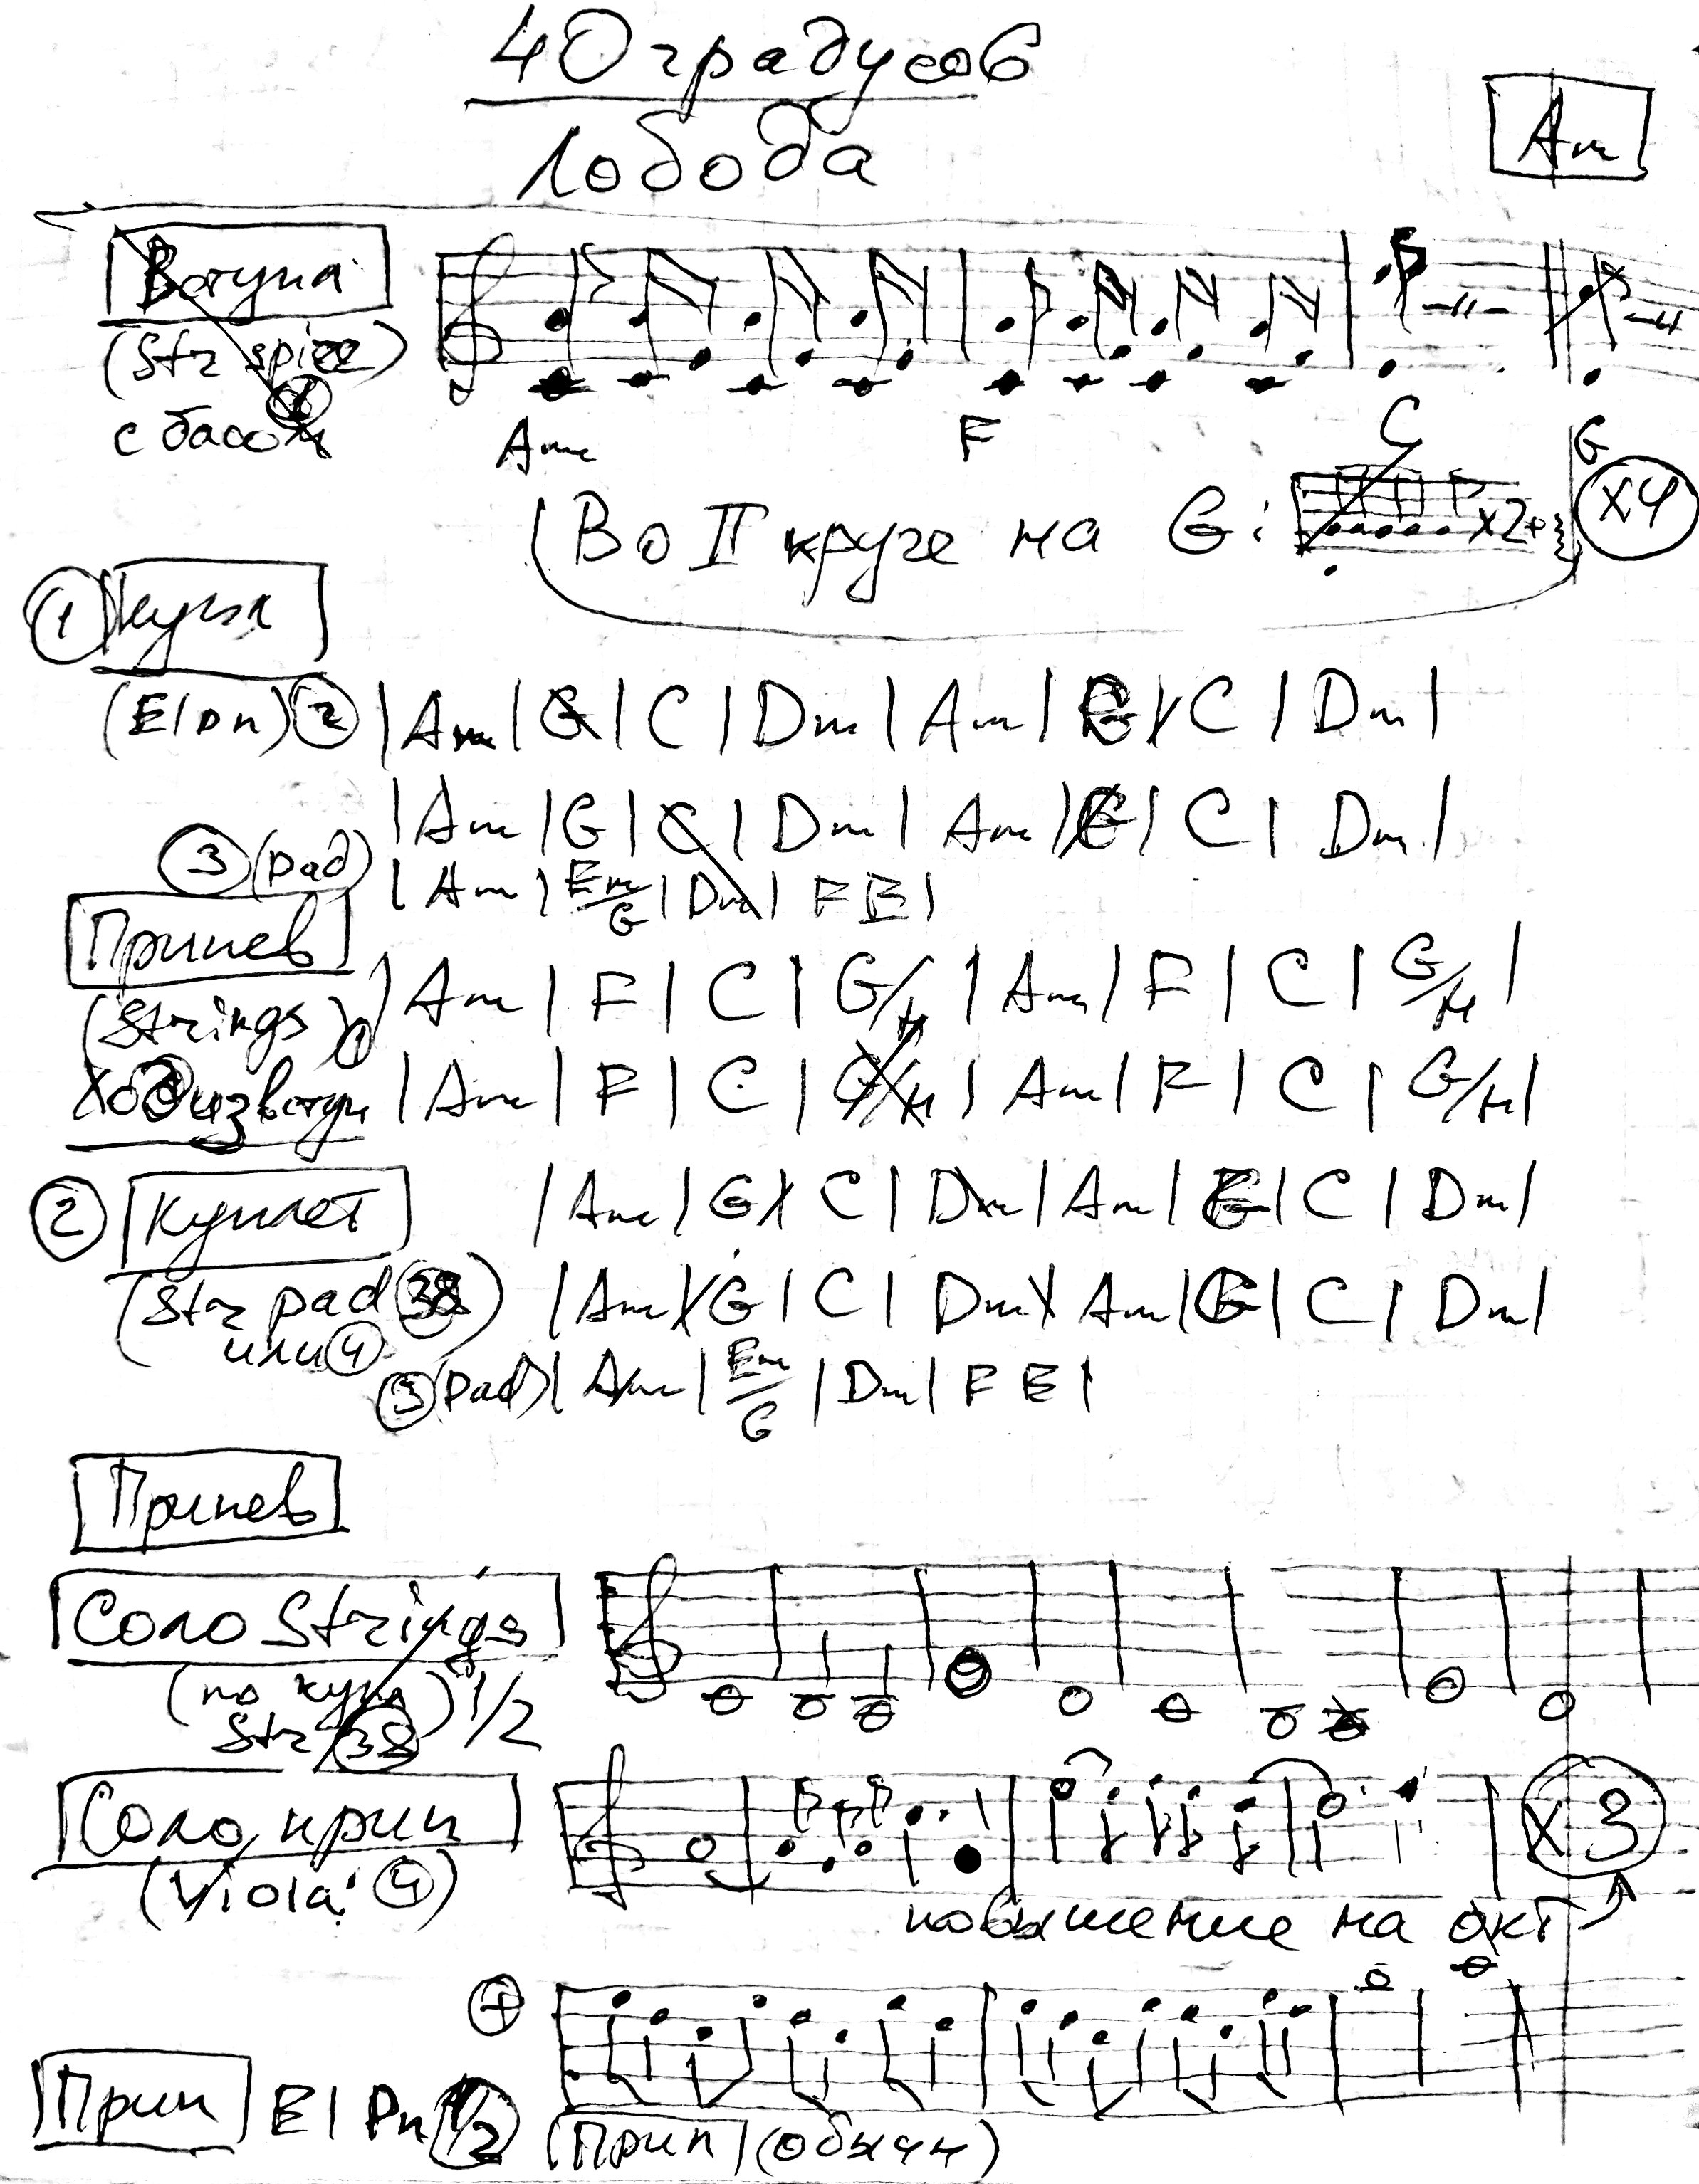 40 градусов
Лобода
Am
Вступл
(Str spicc)
с басом
Am F C G
(Во II круге на G: x2 x4
1 Купл
(El pn) 2 | Am | G | C | Dm | Am | G | C | Dm |
| Am | G | C | Dm | Am | G | C | Dm |
3 (pad) | Am | Em/G | Dm | F E |
Припев
(Strings) 1 | Am | F | C | G/H | Am | F | C | G/H |
Ход из вступ | Am | F | C | G/H | Am | F | C | G/H |
2 Куплет | Am | G | C | Dm | Am | G | C | Dm |
(Str pad 38) | Am | G | C | Dm | Am | G | C | Dm |
или 4
3 (pad) | Am | Em/G | Dm | F E |
Припев
Соло Strings
(по купл) 1/2
Str 38
Соло, прип x 3
(Viola 4)
повышение на окт
+
Прип El Pn 1/2 Прип (обычн)